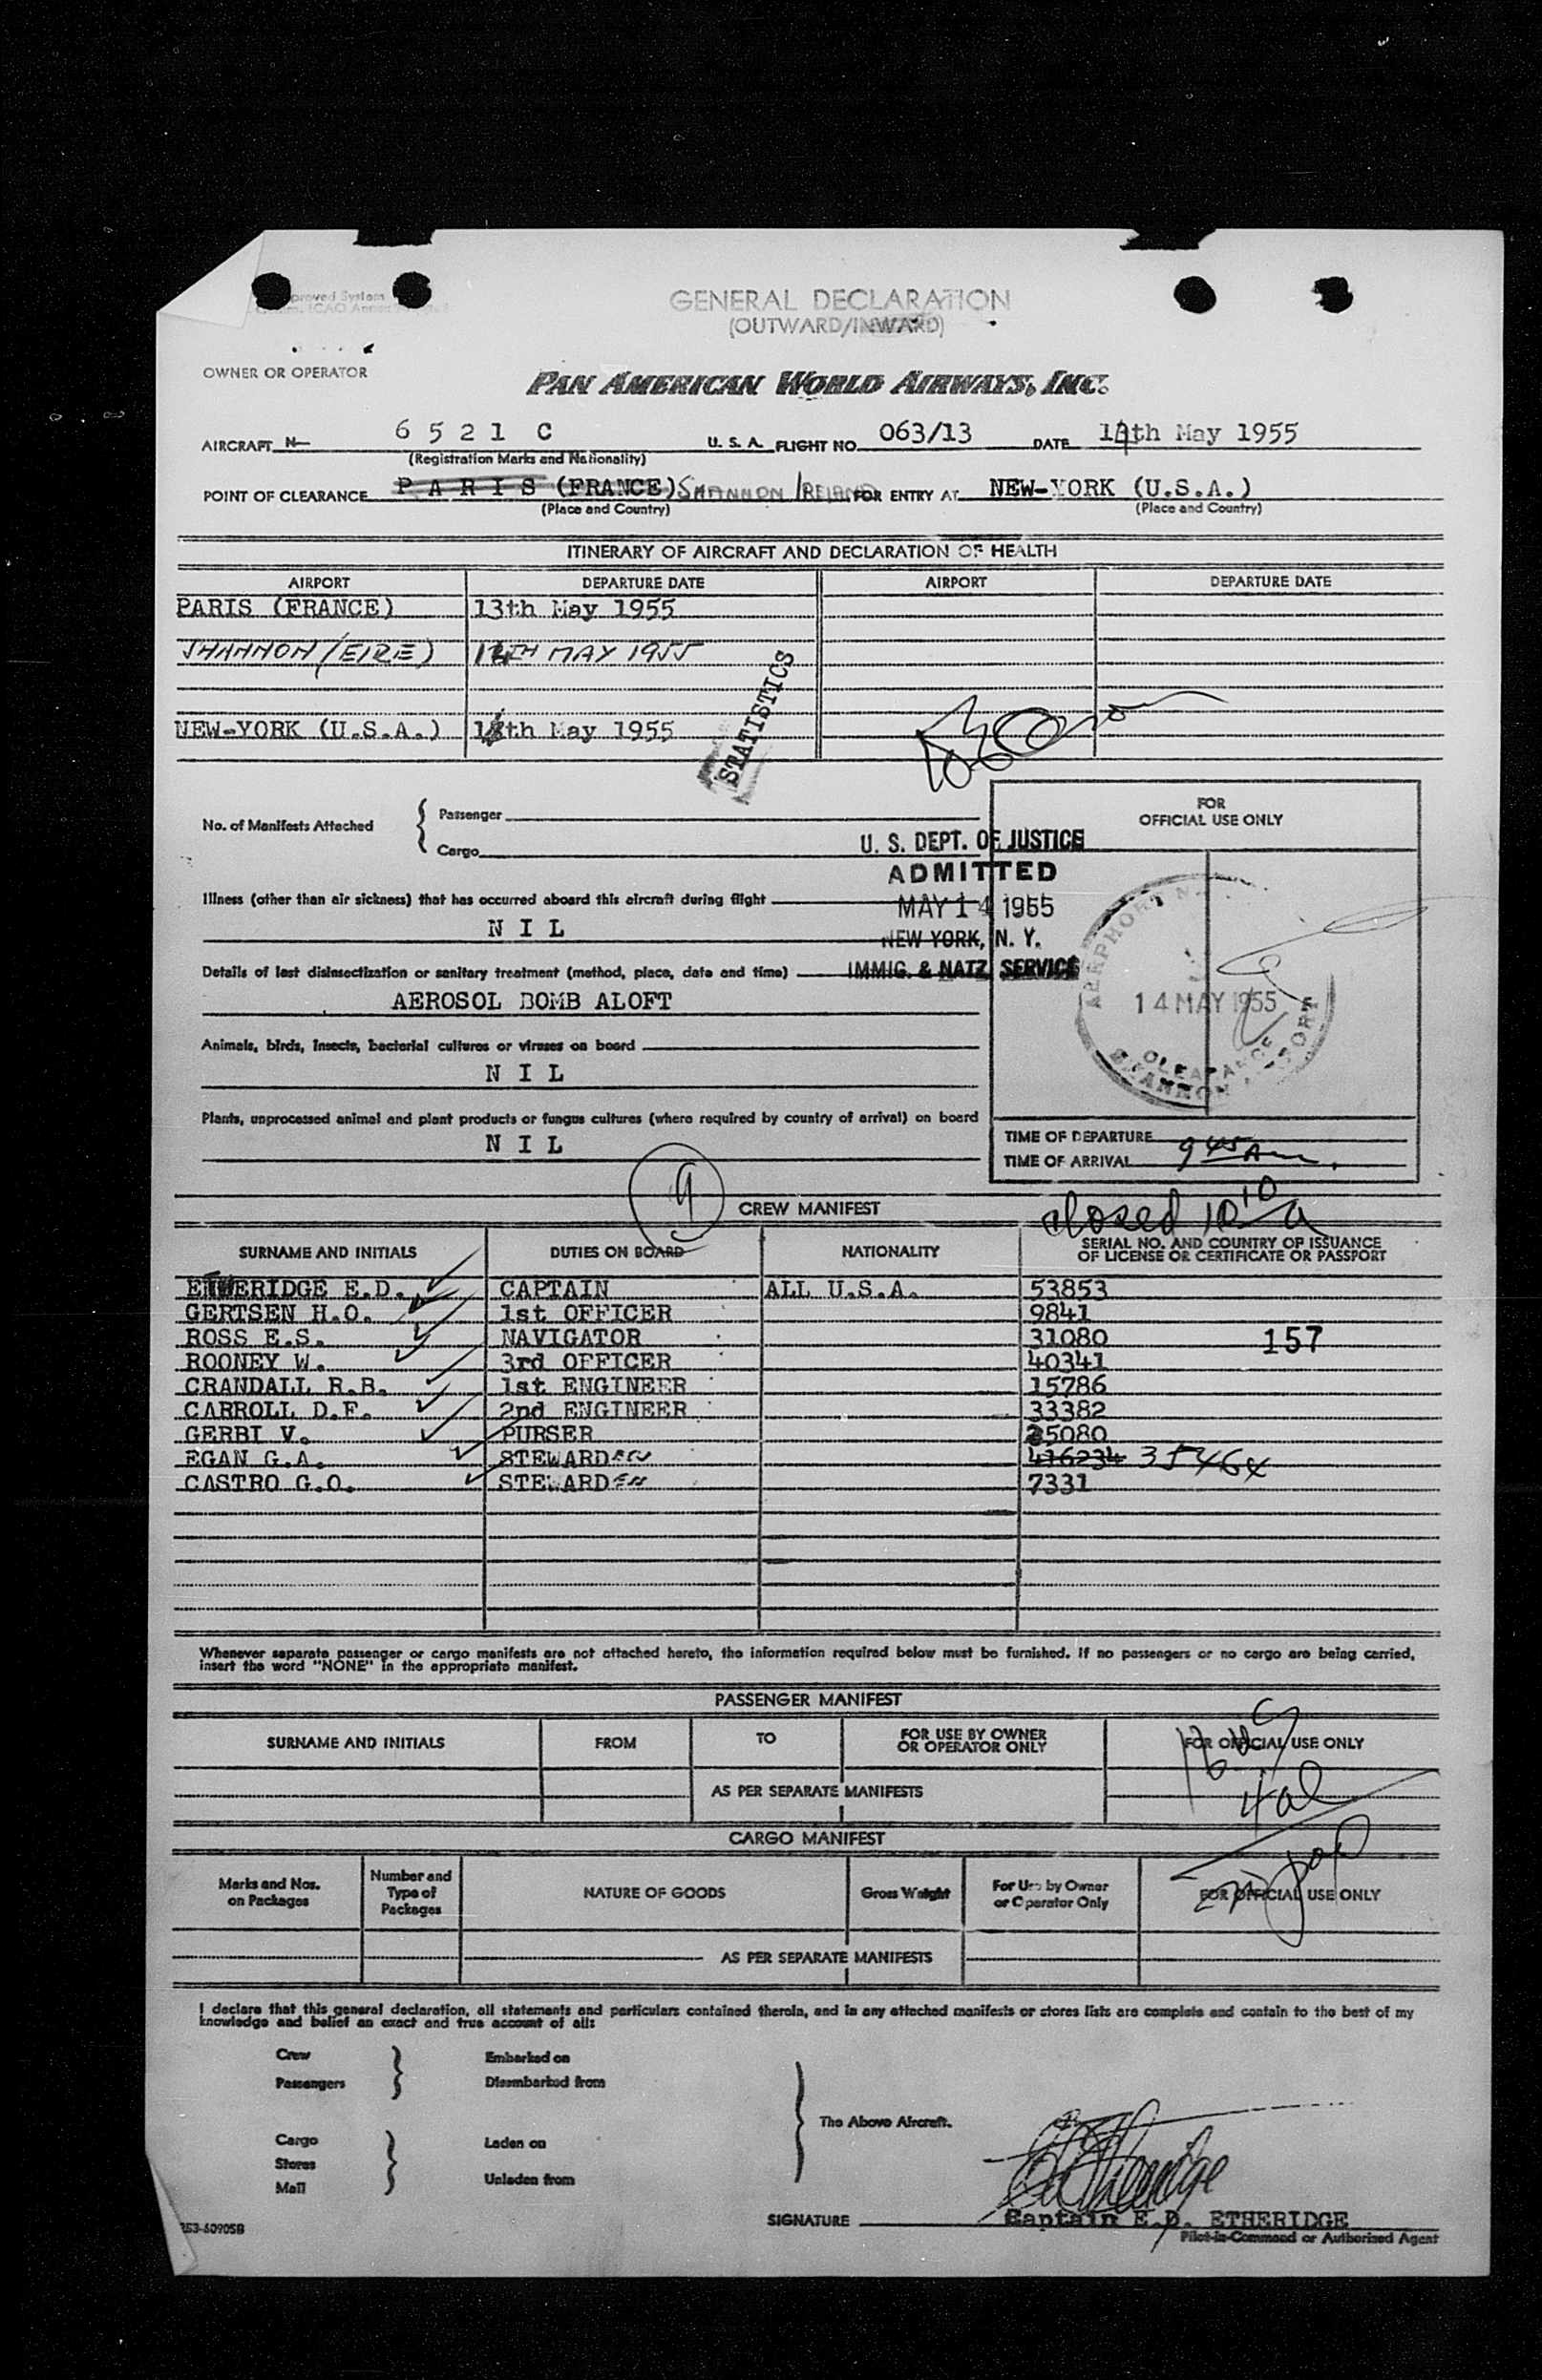 GENERAL DECLARATION
(OUTWARD/INWARD)
OWNER OR OPERATOR
PAN AMERICAN WORLD AIRWAYS, INC.
AIRCRAFT N- 6 5 2 1 C U. S. A. FLIGHT NO. 063/13 DATE 14th May 1955
(Registration Marks and Nationality)
POINT OF CLEARANCE P A R I S (FRANCE) SHANNON IRELAND FOR ENTRY AT NEW-YORK (U.S.A.)
(Place and Country) (Place and Country)
ITINERARY OF AIRCRAFT AND DECLARATION OF HEALTH
AIRPORT DEPARTURE DATE AIRPORT DEPARTURE DATE
PARIS (FRANCE) 13th May 1955
SHANNON (EIRE) 14TH MAY 1955
NEW-YORK (U.S.A.) 14th May 1955
STATISTICS
FOR
OFFICIAL USE ONLY
No. of Manifests Attached { Passenger
Cargo
U. S. DEPT. OF JUSTICE
ADMITTED
MAY 14 1955
NEW YORK, N. Y.
IMMIG. & NATZ. SERVICE
Illness (other than air sickness) that has occurred aboard this aircraft during flight
N I L
Details of last disinsectization or sanitary treatment (method, place, date and time)
AEROSOL BOMB ALOFT
14 MAY 1955
CLEARANCE
SHANNON AIRPORT
Animals, birds, insects, bacterial cultures or viruses on board
N I L
Plants, unprocessed animal and plant products or fungus cultures (where required by country of arrival) on board
N I L
TIME OF DEPARTURE
TIME OF ARRIVAL 9 45 Am.
9
CREW MANIFEST
closed 10 10/a
SURNAME AND INITIALS DUTIES ON BOARD NATIONALITY SERIAL NO. AND COUNTRY OF ISSUANCE
OF LICENSE OR CERTIFICATE OR PASSPORT
ETHERIDGE E.D. CAPTAIN ALL U.S.A. 53853
GERTSEN H.O. 1st OFFICER 9841
ROSS E.S. NAVIGATOR 31080 157
ROONEY W. 3rd OFFICER 40341
CRANDALL R.B. 1st ENGINEER 15786
CARROLL D.F. 2nd ENGINEER 33382
GERBI V. PURSER 25080
EGAN G.A. STEWARD 416234 35464
CASTRO G.O. STEWARD 7331
Whenever separate passenger or cargo manifests are not attached hereto, the information required below must be furnished. If no passengers or no cargo are being carried,
insert the word "NONE" in the appropriate manifest.
PASSENGER MANIFEST
SURNAME AND INITIALS FROM TO FOR USE BY OWNER
OR OPERATOR ONLY FOR OFFICIAL USE ONLY
AS PER SEPARATE MANIFESTS
CARGO MANIFEST
Marks and Nos.
on Packages Number and
Type of
Packages NATURE OF GOODS Gross Weight For Use by Owner
or Operator Only FOR OFFICIAL USE ONLY
AS PER SEPARATE MANIFESTS
I declare that this general declaration, all statements and particulars contained therein, and in any attached manifests or stores lists are complete and contain to the best of my
knowledge and belief an exact and true account of all:
Crew Embarked on
Passengers Disembarked from
The Above Aircraft.
Cargo Laden on
Stores
Mail Unladen from
SIGNATURE Captain E.D. ETHERIDGE
Pilot-in-Command or Authorized Agent